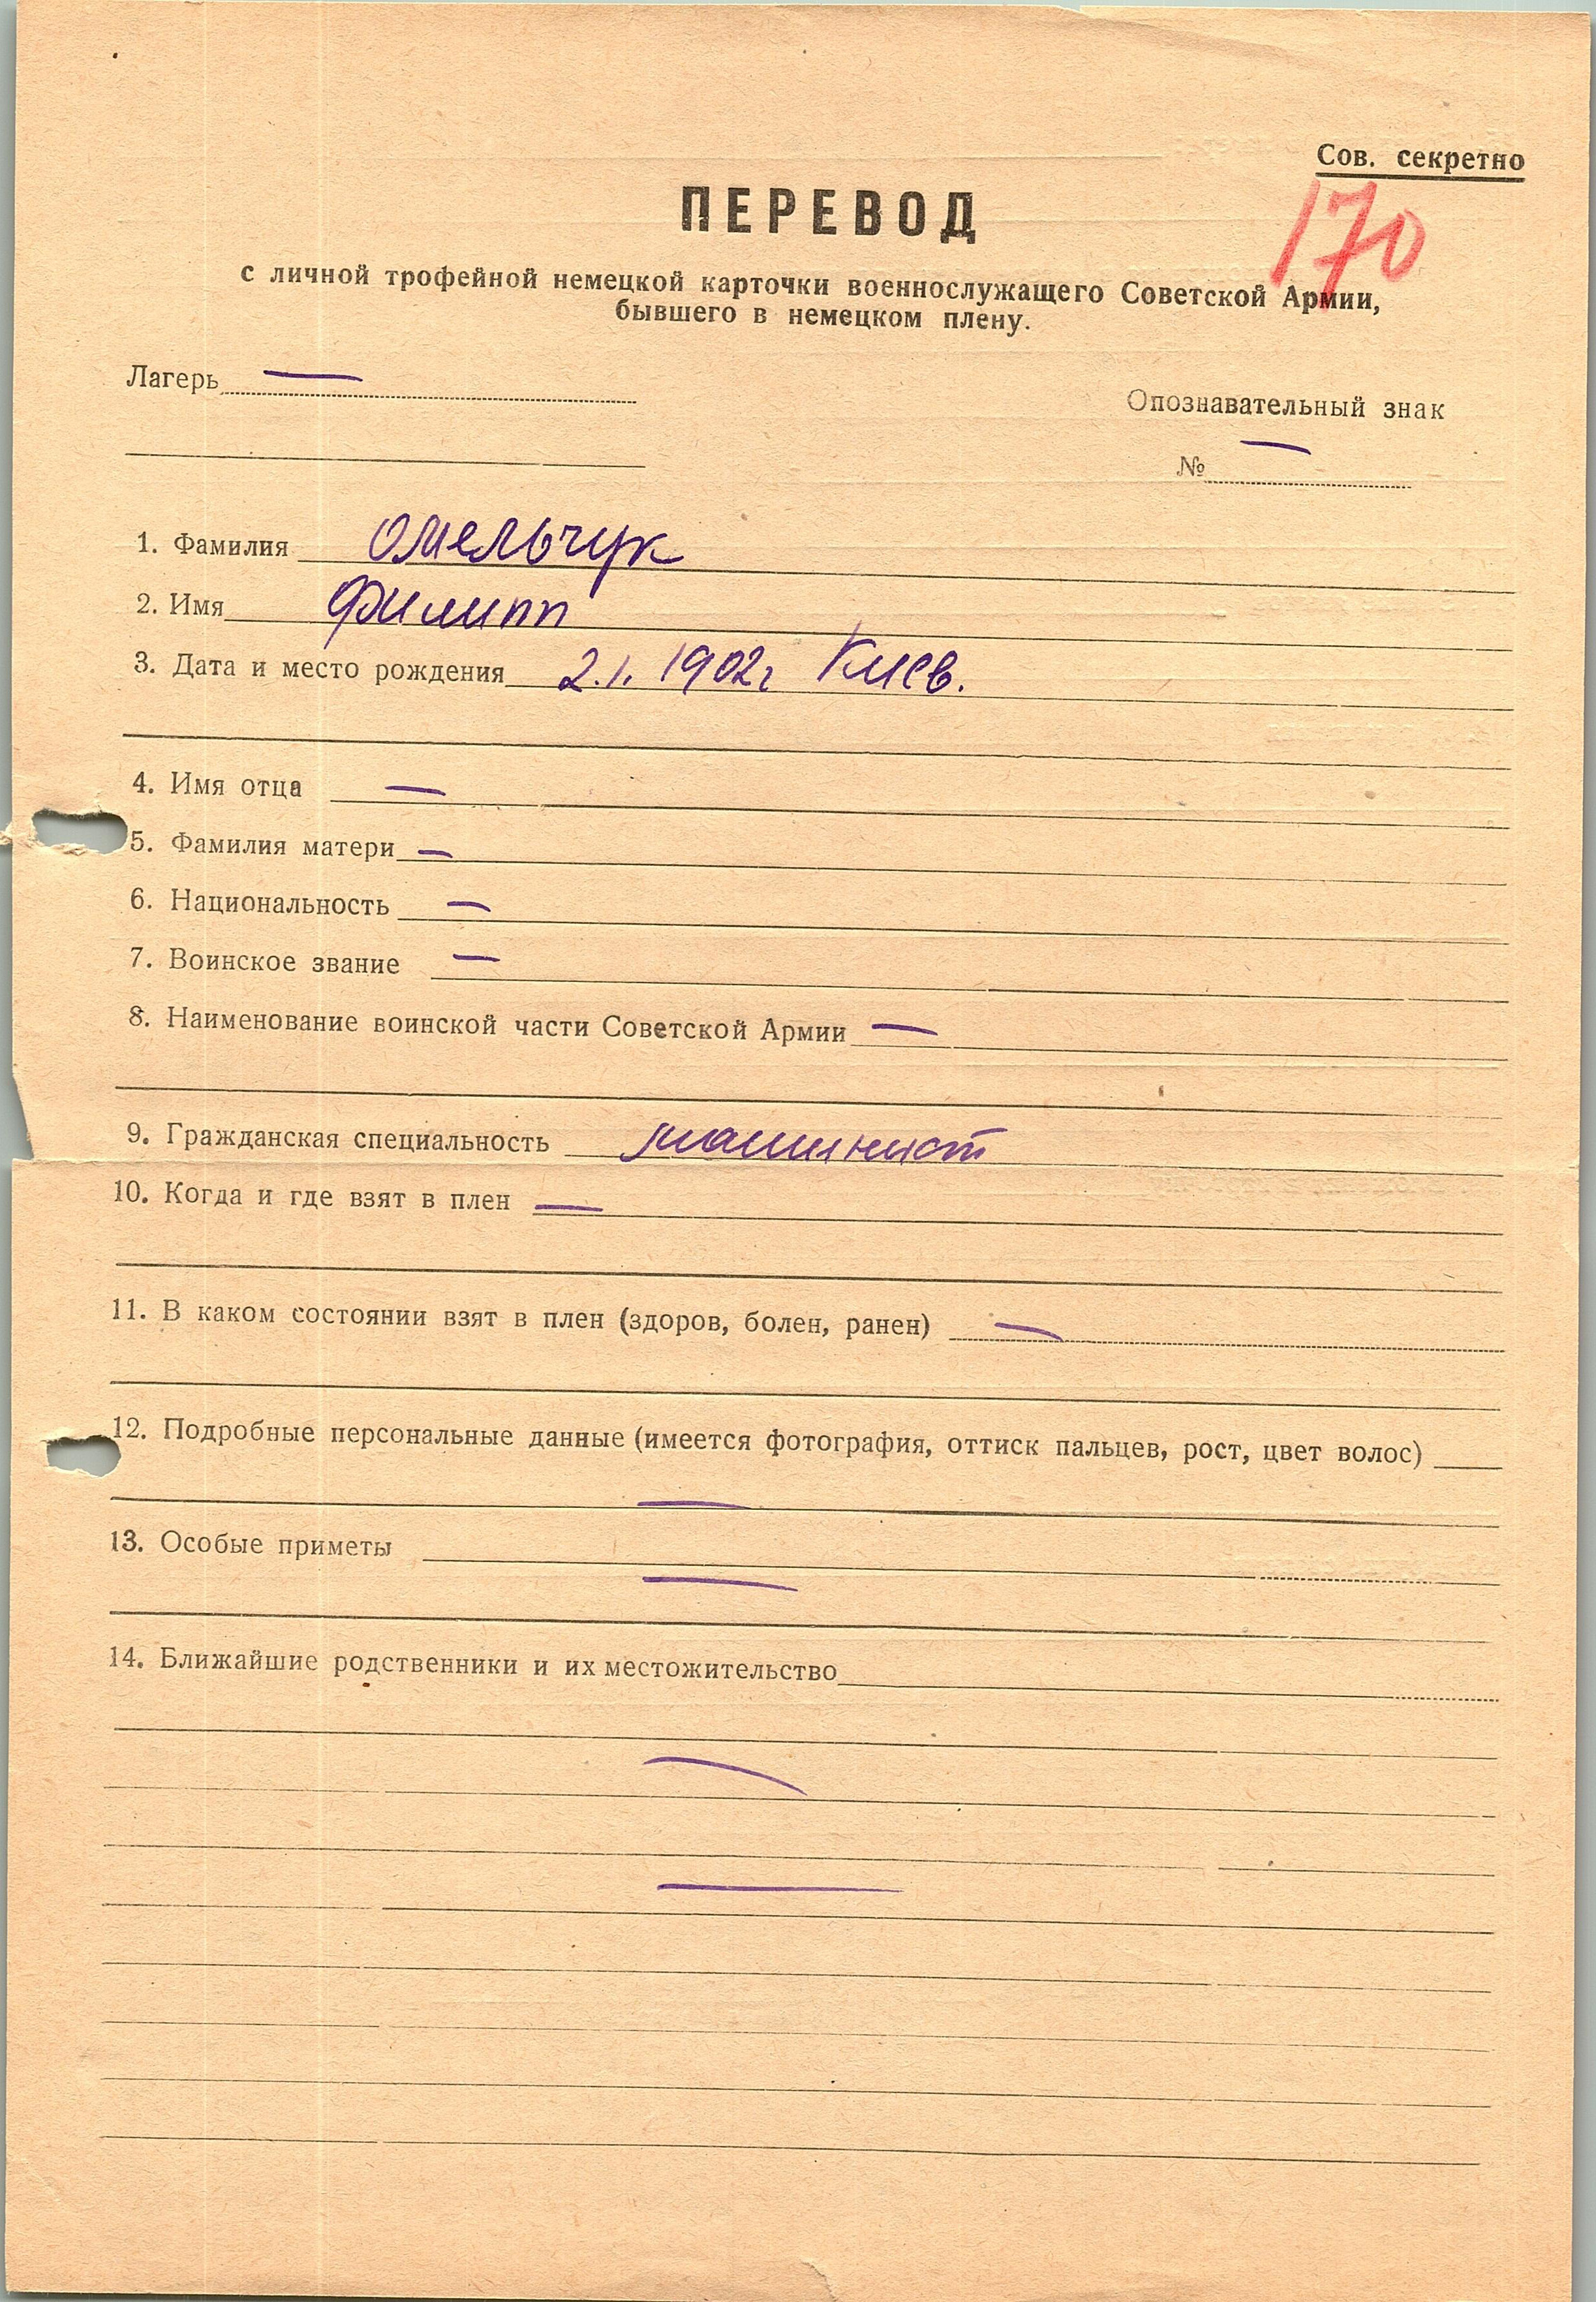 Сов. секретно
ПЕРЕВОД
170
с личной трофейной немецкой карточки военнослужащего Советской Армии,
бывшего в немецком плену.
Лагерь —
Опознавательный знак
№ —
1. Фамилия Омельчук
2. Имя Филипп
3. Дата и место рождения 2.1. 1902г Киев.
4. Имя отца —
5. Фамилия матери —
6. Национальность —
7. Воинское звание —
8. Наименование воинской части Советской Армии —
9. Гражданская специальность машинист
10. Когда и где взят в плен —
11. В каком состоянии взят в плен (здоров, болен, ранен) —
12. Подробные персональные данные (имеется фотография, оттиск пальцев, рост, цвет волос)
—
13. Особые приметы
—
14. Ближайшие родственники и их местожительство
—
—